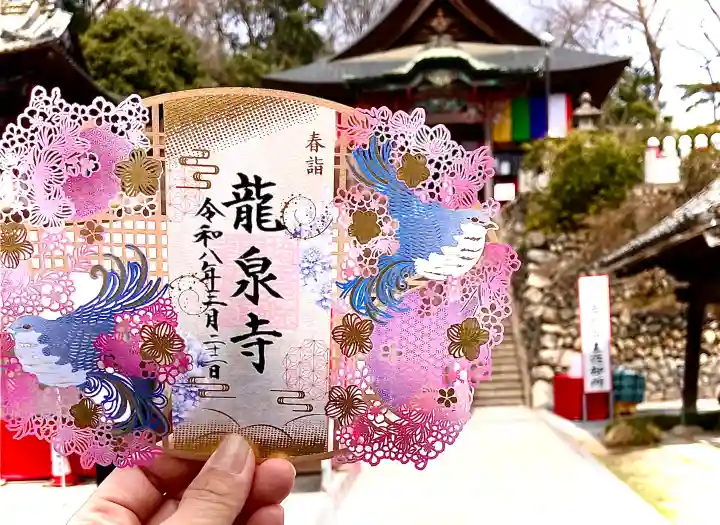 春詣
龍泉寺
令和八年三月二十一日